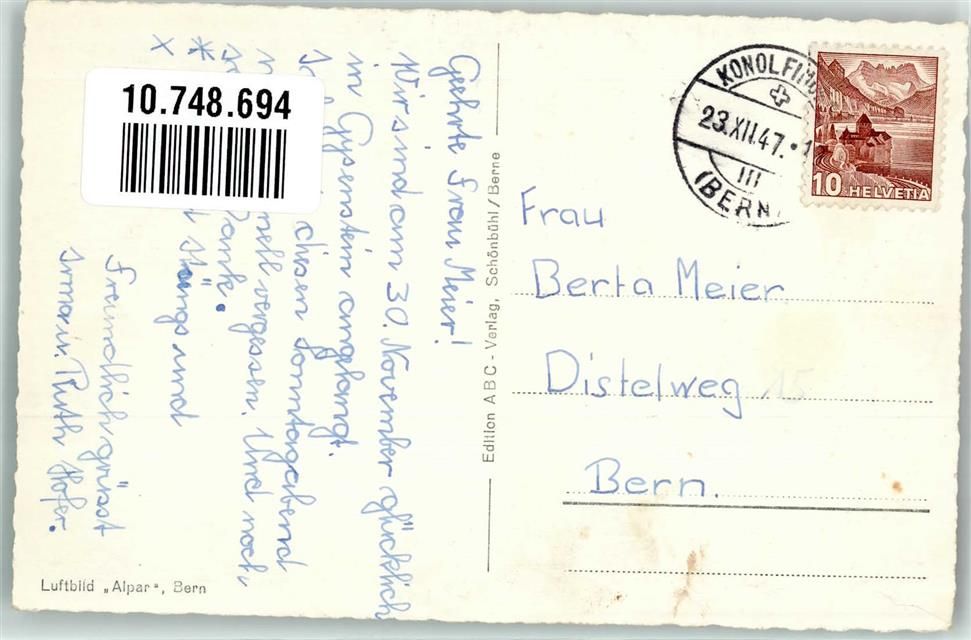 10.748.694
Gehrte Frau Meier!
Wir sind am 30. November glücklich
in Gysenstein angelangt.
disen Sonntagabend
nell vergessen. Und noch
Dank.
und
Freundlich grüsst
Irma u. Ruth Hofer.
Luftbild „Alpar", Bern
Edition ABC - Verlag, Schönbühl / Berne
KONOLFIN
23.XII.47.
III
(BERN
10 HELVETIA
Frau
Berta Meier
Distelweg 15
Bern.